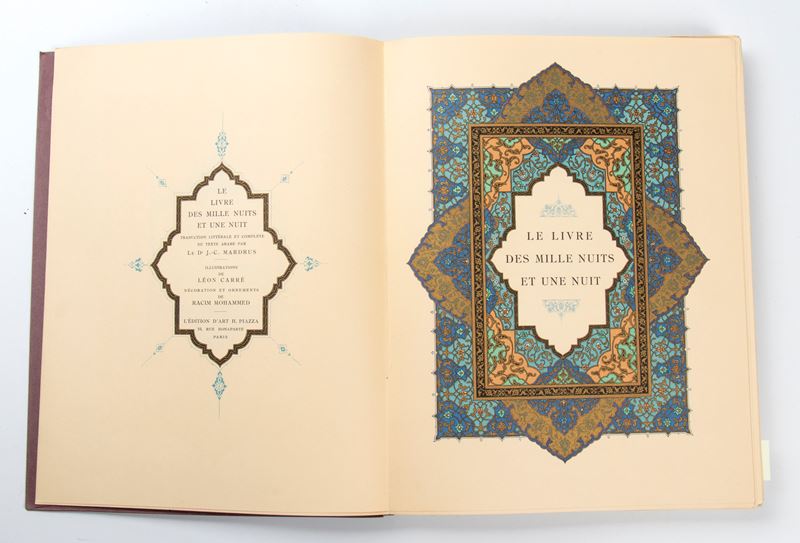 LE
LIVRE
DES MILLE NUITS
ET UNE NUIT
TRADUCTION LITTÉRALE ET COMPLÈTE
DU TEXTE ARABE PAR
LE Dr J.-C. MARDRUS
ILLUSTRATIONS
DE
LÉON CARRÉ
DÉCORATION ET ORNEMENTS
DE
RACIM MOHAMMED
L'ÉDITION D'ART H. PIAZZA
19, RUE BONAPARTE
PARIS
LE LIVRE
DES MILLE NUITS
ET UNE NUIT